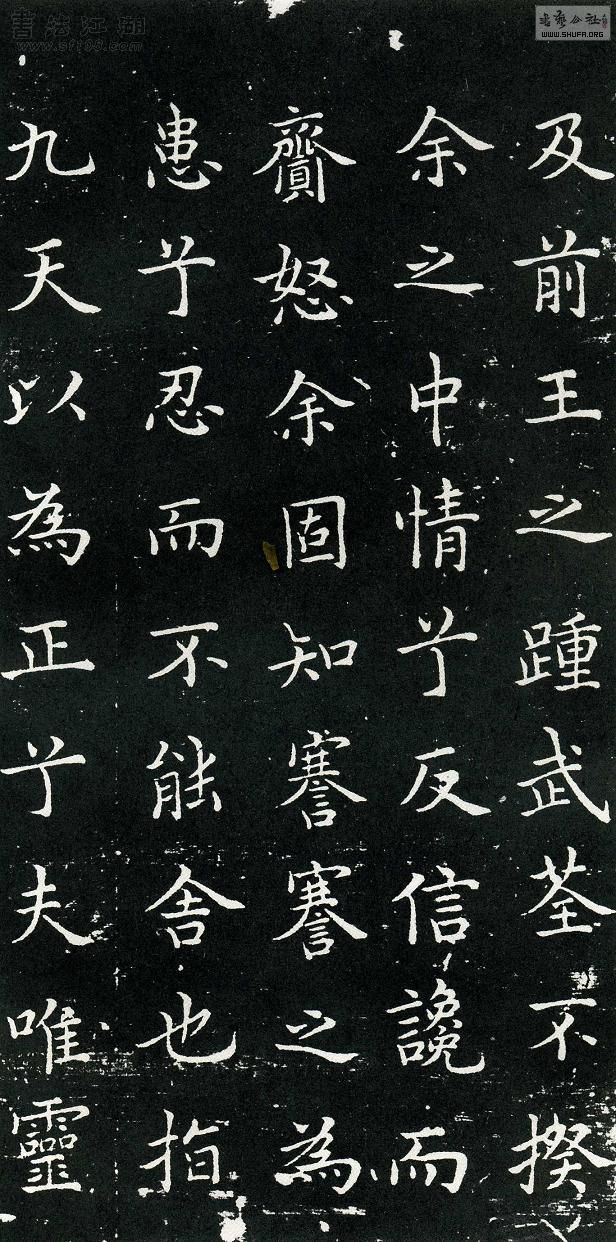 及前王之踵武荃不揆
余之中情兮反信讒而
齌怒余固知謇謇之為
患兮忍而不能舍也指
九天以為正兮夫唯靈
書法江湖
www.sf108.com
書藝公社
WWW.SHUFA.ORG